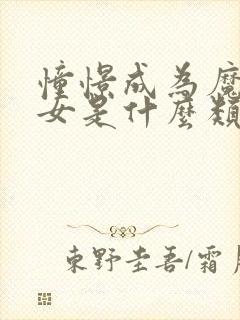 憧憬成為魔
女是什麼類
東野圭吾/霜月